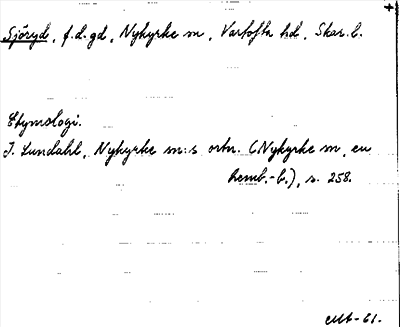 Sjöryd, f.d.gd, Nykyrke sn, Vartofta hd, Skar.l.
Etymologi.
I. Lundahl, Nykyrke sn:s ortn. (Nykyrke sn, en
hemb.-b.), s. 258.
-61.